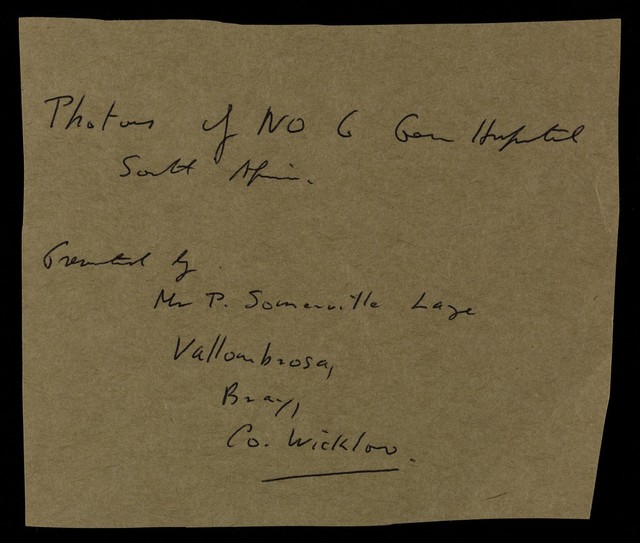 Photos of NO 6 Gen Hospital
South Africa.
Presented by
Mr P. Somerville Large
Vallombrosa,
Bray,
Co. Wicklow.